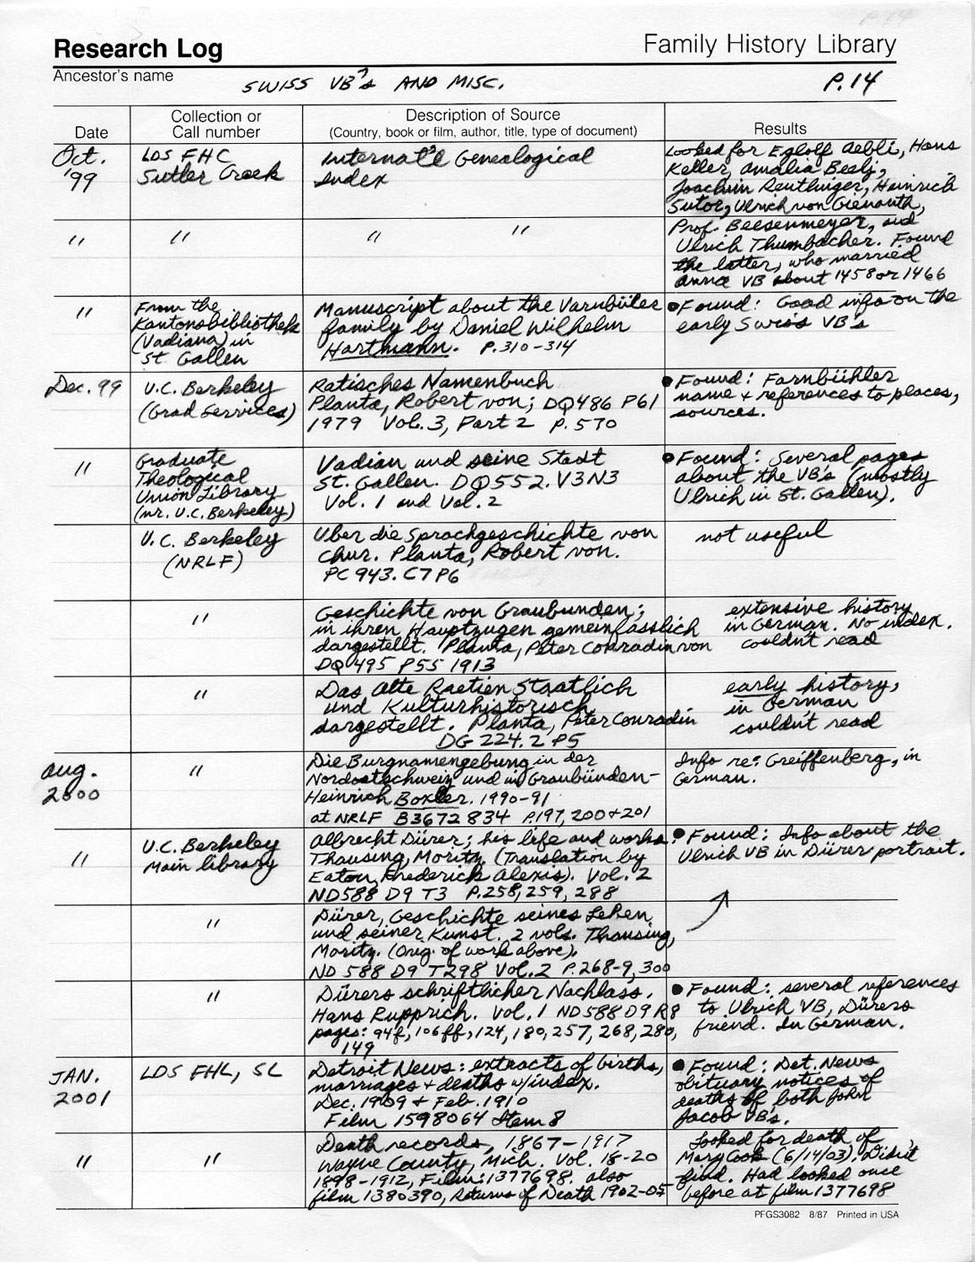 Research Log
Family History Library
Ancestor's name
SWISS VB's AND MISC.
P.14
Date
Collection or
Call number
Description of Source
(Country, book or film, author, title, type of document)
Results
Oct.
'99
LDS FHC
Sutter Creek
Internat'l Genealogical
Index
Looked for Egloff Aebli, Hans
Keller, Amalia Beeli,
Joachim Reutlinger, Heinrich
Sutor, Ulrich von Gienouth,
" " " "
Prof. Beesenmeyer, and
Ulrich Thumbacher. Found
the latter, who married
Anna VB about 1458 or 1466
"
From the
Kantonsbibliothek
(Vadiana) in
St Gallen
Manuscript about the Varnbüler
family by Daniel Wilhelm
Hartmann. P.310-314
• Found: Good info on the
early Swiss VB's
Dec. 99
U.C. Berkeley
(Grad Services)
Ratisches Namenbuch
Planta, Robert von; DQ486 P61
1979 Vol. 3, Part 2 P. 570
• Found: Farnbühler
name + references to places,
sources.
"
Graduate
Theological
Union Library
(nr. U.C. Berkeley)
Vadian und seine Stadt
St. Gallen. DQ552.V3N3
Vol. 1 and Vol. 2
• Found: Several pages
about the VB's (mostly
Ulrich in St. Gallen).
U.C. Berkeley
(NRLF)
Uber die Sprachgeschichte von
Chur. Planta, Robert von.
PC 943. C7 P6
not useful
"
Geschichte von Graubunden;
in ihren Hauptzugen gemeinfasslich
dargestellt. Planta, Peter Conradin von
DQ 495 P55 1913
extensive history
in German. No index.
couldn't read
"
Das Alte Raetien Staatlich
und Kulturhistorisch
dargestellt. Planta, Peter Conradin
DG 224.2 P5
early history,
in German
couldn't read
Aug.
2000
"
Die Burgnamengebung in der
Nordostschweiz und in Graubünden-
Heinrich Boxler. 1990-91
at NRLF B3672834 P.197, 200+201
Info re: Greiffenberg, in
German.
"
U.C. Berkeley
Main library
Albrecht Dürer; his life and works.
Thausing, Moritz (Translation by
Eaton, Frederick Alexis). Vol. 2
ND588 D9 T3 P.258, 259, 288
• Found: Info about the
Ulrich VB in Dürer portrait.
"
Dürer, Geschichte seines Leben
und seiner Kunst. 2 vols. Thausing,
Moritz. (Orig. of work above).
ND 588 D9 T298 Vol. 2 P.268-9, 300
"
Dürers schriftlicher Nachlass.
Hans Rupprich. Vol. 1 ND588 D9 R8
pages: 94f, 106ff, 124, 180, 257, 268, 280,
149
• Found: several references
to Ulrich VB, Dürers
friend. In German.
JAN.
2001
LDS FHL, SL
Detroit News: extracts of births,
marriages + deaths w/index.
Dec. 1909 + Feb. 1910
Film 1598064 Item 8
• Found: Det. News
obituary notices of
deaths of both John
Jacob VB's.
" "
Death records, 1867-1917
Wayne County, Mich. Vol. 18-20
1898-1912, Film: 1377698. also
film 1380390, Returns of Death 1902-05
Looked for death of
Mary Cook (6/14/03). Didn't
find. Had looked once
before at film 1377698
PFGS3082 8/87 Printed in USA